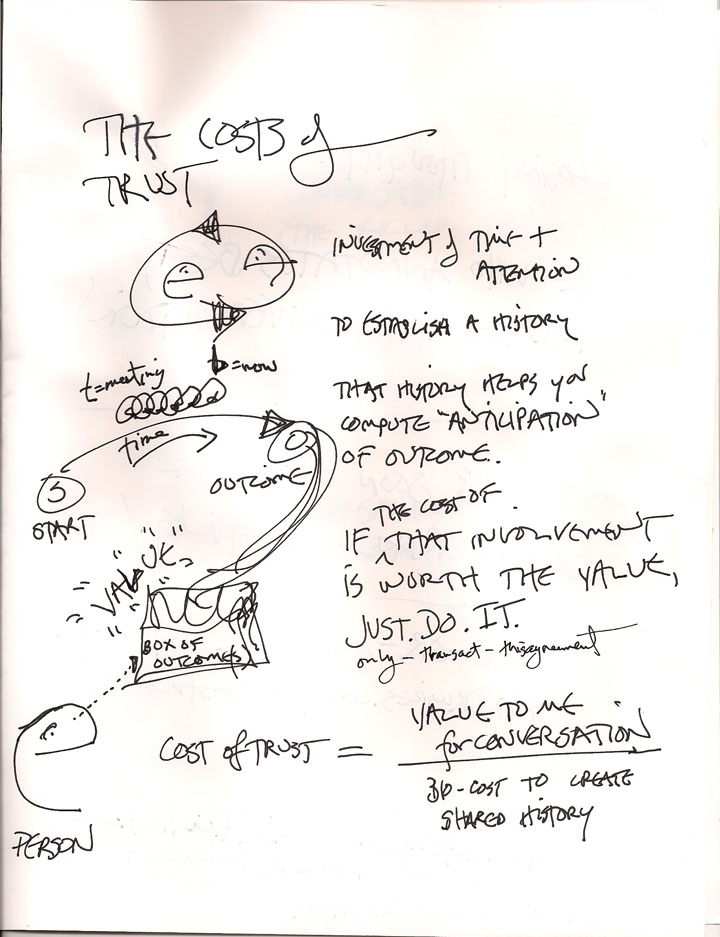 THE COSTS of
TRUST
INVESTMENT of TIME +
ATTENTION
TO ESTABLISH A HISTORY
t=meeting
t=now
THAT HISTORY HELPS YOU
COMPUTE "ANTICIPATION"
OF OUTCOME.
time
OUTCOME
S
O
START
THE COST OF
IF ^ THAT INVOLVEMENT
IS WORTH THE VALUE,
JUST. DO. IT.
only - transact - this
VALUE
BOX OF
OUTCOME(S)
COST of TRUST =
VALUE TO ME
for CONVERSATION
COST TO CREATE
SHARED HISTORY
PERSON